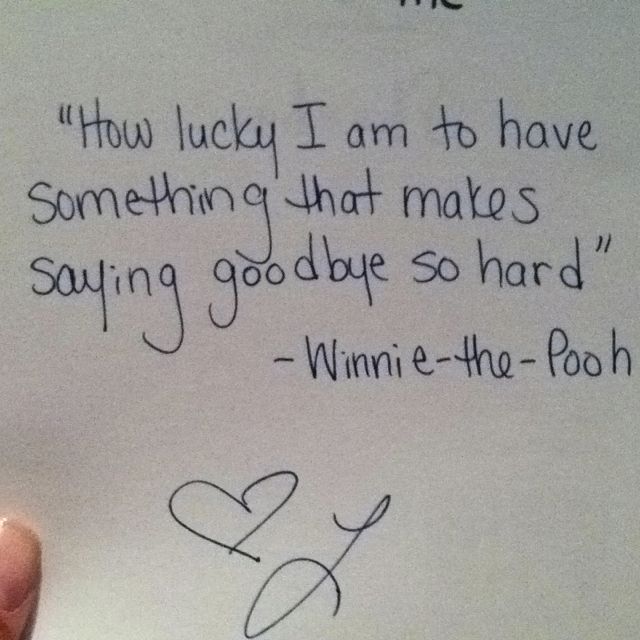 "How lucky I am to have
something that makes
saying goodbye so hard"
-Winnie-the-Pooh
♡ L